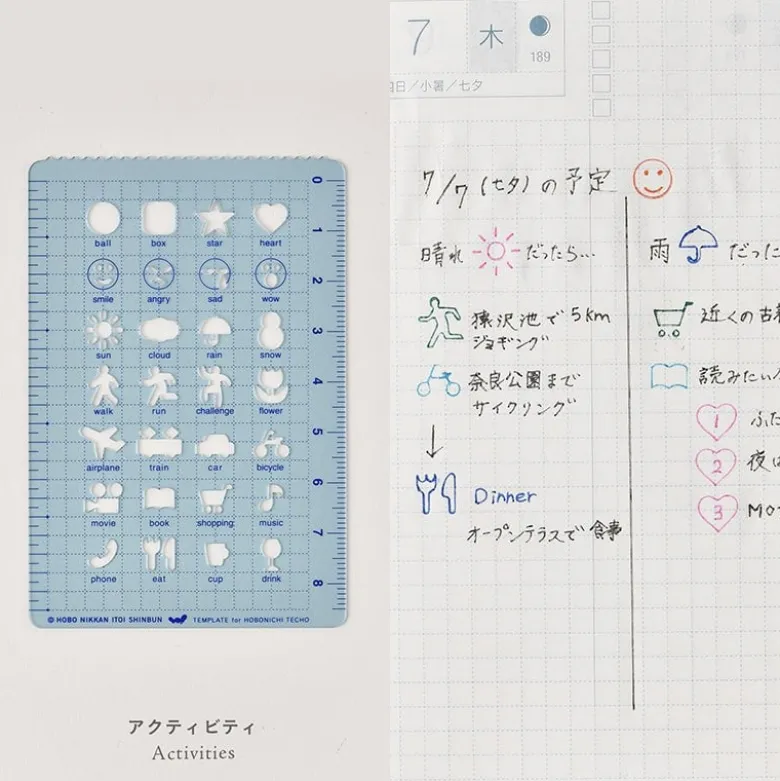 0
1
2
3
4
5
6
7
8
ball box star heart
smile angry sad wow
sun cloud rain snow
walk run challenge flower
airplane train car bicycle
movie book shopping music
phone eat cup drink
© HOBO NIKKAN ITOI SHINBUN TEMPLATE for HOBONICHI TECHO
アクティビティ
Activities
7 木
189
日/小暑/七夕
7/7 (七夕) の予定
晴れ だったら…
猿沢池で5km
ジョギング
奈良公園まで
サイクリング
↓
Dinner
オープンテラスで食事
雨 だった
近くの古
読みたい
1 ふた
2 夜は
3 Mo